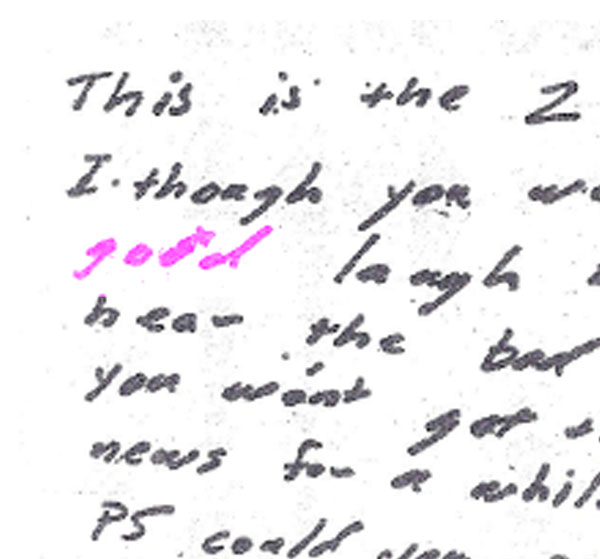 This is the Z
I. though you w
good laugh
hear the bad
you wont get t
news for a whil
PS could